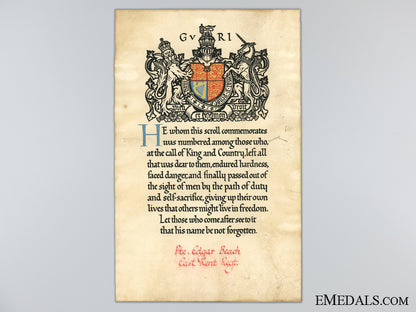 G V R I
HE whom this scroll commemorates
was numbered among those who,
at the call of King and Country, left all
that was dear to them, endured hardness,
faced danger, and finally passed out of
the sight of men by the path of duty
and self-sacrifice, giving up their own
lives that others might live in freedom.
Let those who come after see to it
that his name be not forgotten.
Pte. Edgar Beach
East Kent Regt.
EMEDALS.COM